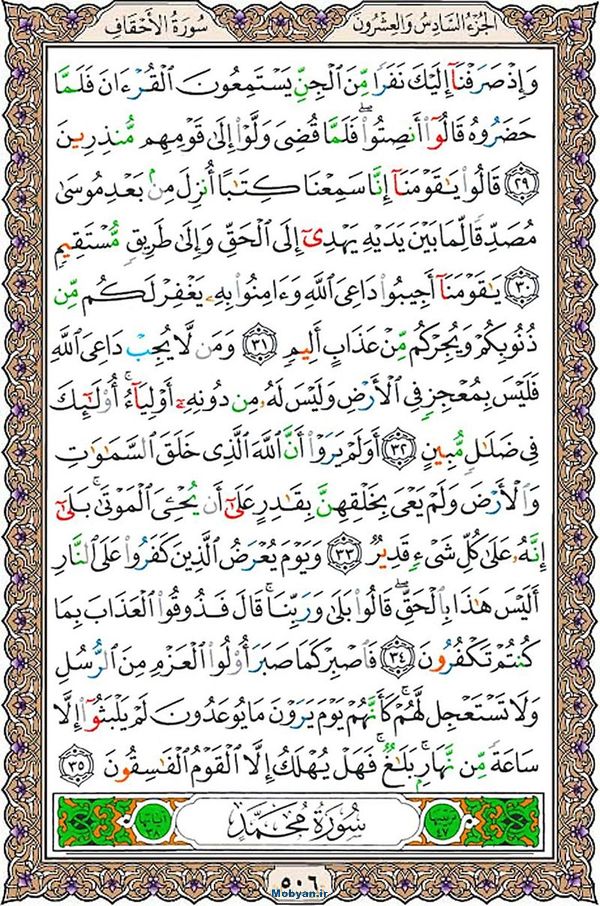 الجزء السادس والعشرون
سورة الأحقاف
وَإِذْ صَرَفْنَآ إِلَيْكَ نَفَرًا مِّنَ ٱلْجِنِّ يَسْتَمِعُونَ ٱلْقُرْءَانَ فَلَمَّا
حَضَرُوهُ قَالُوٓا۟ أَنصِتُوا۟ ۖ فَلَمَّا قُضِىَ وَلَّوْا۟ إِلَىٰ قَوْمِهِم مُّنذِرِينَ
٢٩ قَالُوا۟ يَٰقَوْمَنَآ إِنَّا سَمِعْنَا كِتَٰبًا أُنزِلَ مِنۢ بَعْدِ مُوسَىٰ
مُصَدِّقًا لِّمَا بَيْنَ يَدَيْهِ يَهْدِىٓ إِلَى ٱلْحَقِّ وَإِلَىٰ طَرِيقٍ مُّسْتَقِيمٍ
٣٠ يَٰقَوْمَنَآ أَجِيبُوا۟ دَاعِىَ ٱللَّهِ وَءَامِنُوا۟ بِهِۦ يَغْفِرْ لَكُم مِّن
ذُنُوبِكُمْ وَيُجِرْكُم مِّنْ عَذَابٍ أَلِيمٍ ٣١ وَمَن لَّا يُجِبْ دَاعِىَ ٱللَّهِ
فَلَيْسَ بِمُعْجِزٍ فِى ٱلْأَرْضِ وَلَيْسَ لَهُۥ مِن دُونِهِۦٓ أَوْلِيَآءُ ۚ أُو۟لَٰٓئِكَ
فِى ضَلَٰلٍ مُّبِينٍ ٣٢ أَوَلَمْ يَرَوْا۟ أَنَّ ٱللَّهَ ٱلَّذِى خَلَقَ ٱلسَّمَٰوَٰتِ
وَٱلْأَرْضَ وَلَمْ يَعْىَ بِخَلْقِهِنَّ بِقَٰدِرٍ عَلَىٰٓ أَن يُحْۦِىَ ٱلْمَوْتَىٰ ۚ بَلَىٰٓ
إِنَّهُۥ عَلَىٰ كُلِّ شَىْءٍ قَدِيرٌ ٣٣ وَيَوْمَ يُعْرَضُ ٱلَّذِينَ كَفَرُوا۟ عَلَى ٱلنَّارِ
أَلَيْسَ هَٰذَا بِٱلْحَقِّ ۖ قَالُوا۟ بَلَىٰ وَرَبِّنَا ۚ قَالَ فَذُوقُوا۟ ٱلْعَذَابَ بِمَا
كُنتُمْ تَكْفُرُونَ ٣٤ فَٱصْبِرْ كَمَا صَبَرَ أُو۟لُوا۟ ٱلْعَزْمِ مِنَ ٱلرُّسُلِ
وَلَا تَسْتَعْجِل لَّهُمْ ۚ كَأَنَّهُمْ يَوْمَ يَرَوْنَ مَا يُوعَدُونَ لَمْ يَلْبَثُوٓا۟ إِلَّا
سَاعَةً مِّن نَّهَارٍۭ ۚ بَلَٰغٌ ۚ فَهَلْ يُهْلَكُ إِلَّا ٱلْقَوْمُ ٱلْفَٰسِقُونَ ٣٥
ترتيبها ٤٧
سورة محمد
آياتها ٣٨
٥٠٦
Mobyan.ir